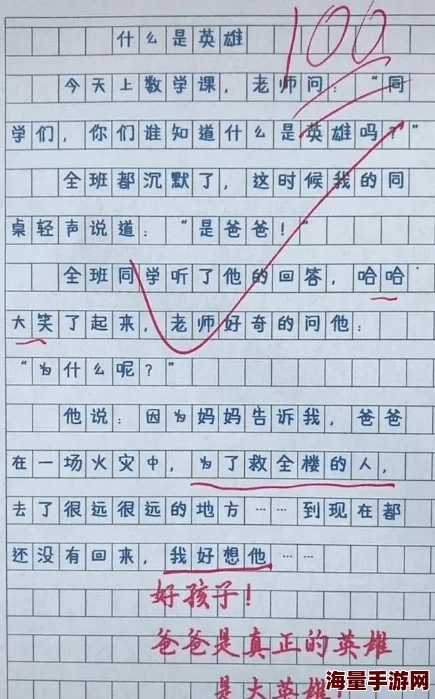 什么是英雄
100
今天上数学课,老师问:“同
学们,你们谁知道什么是英雄吗?”
全班都沉默了,这时候我的同
桌轻声说道:“是爸爸!”
全班同学听了他的回答,哈哈
大笑了起来,老师好奇的问他:
“为什么呢?”
他说:因为妈妈告诉我,爸爸
在一场火灾中,为了救全楼的人,
去了很远很远的地方……到现在都
还没有回来,我好想他……
好孩子!
爸爸是真正的英雄
是大英雄
海量手游网